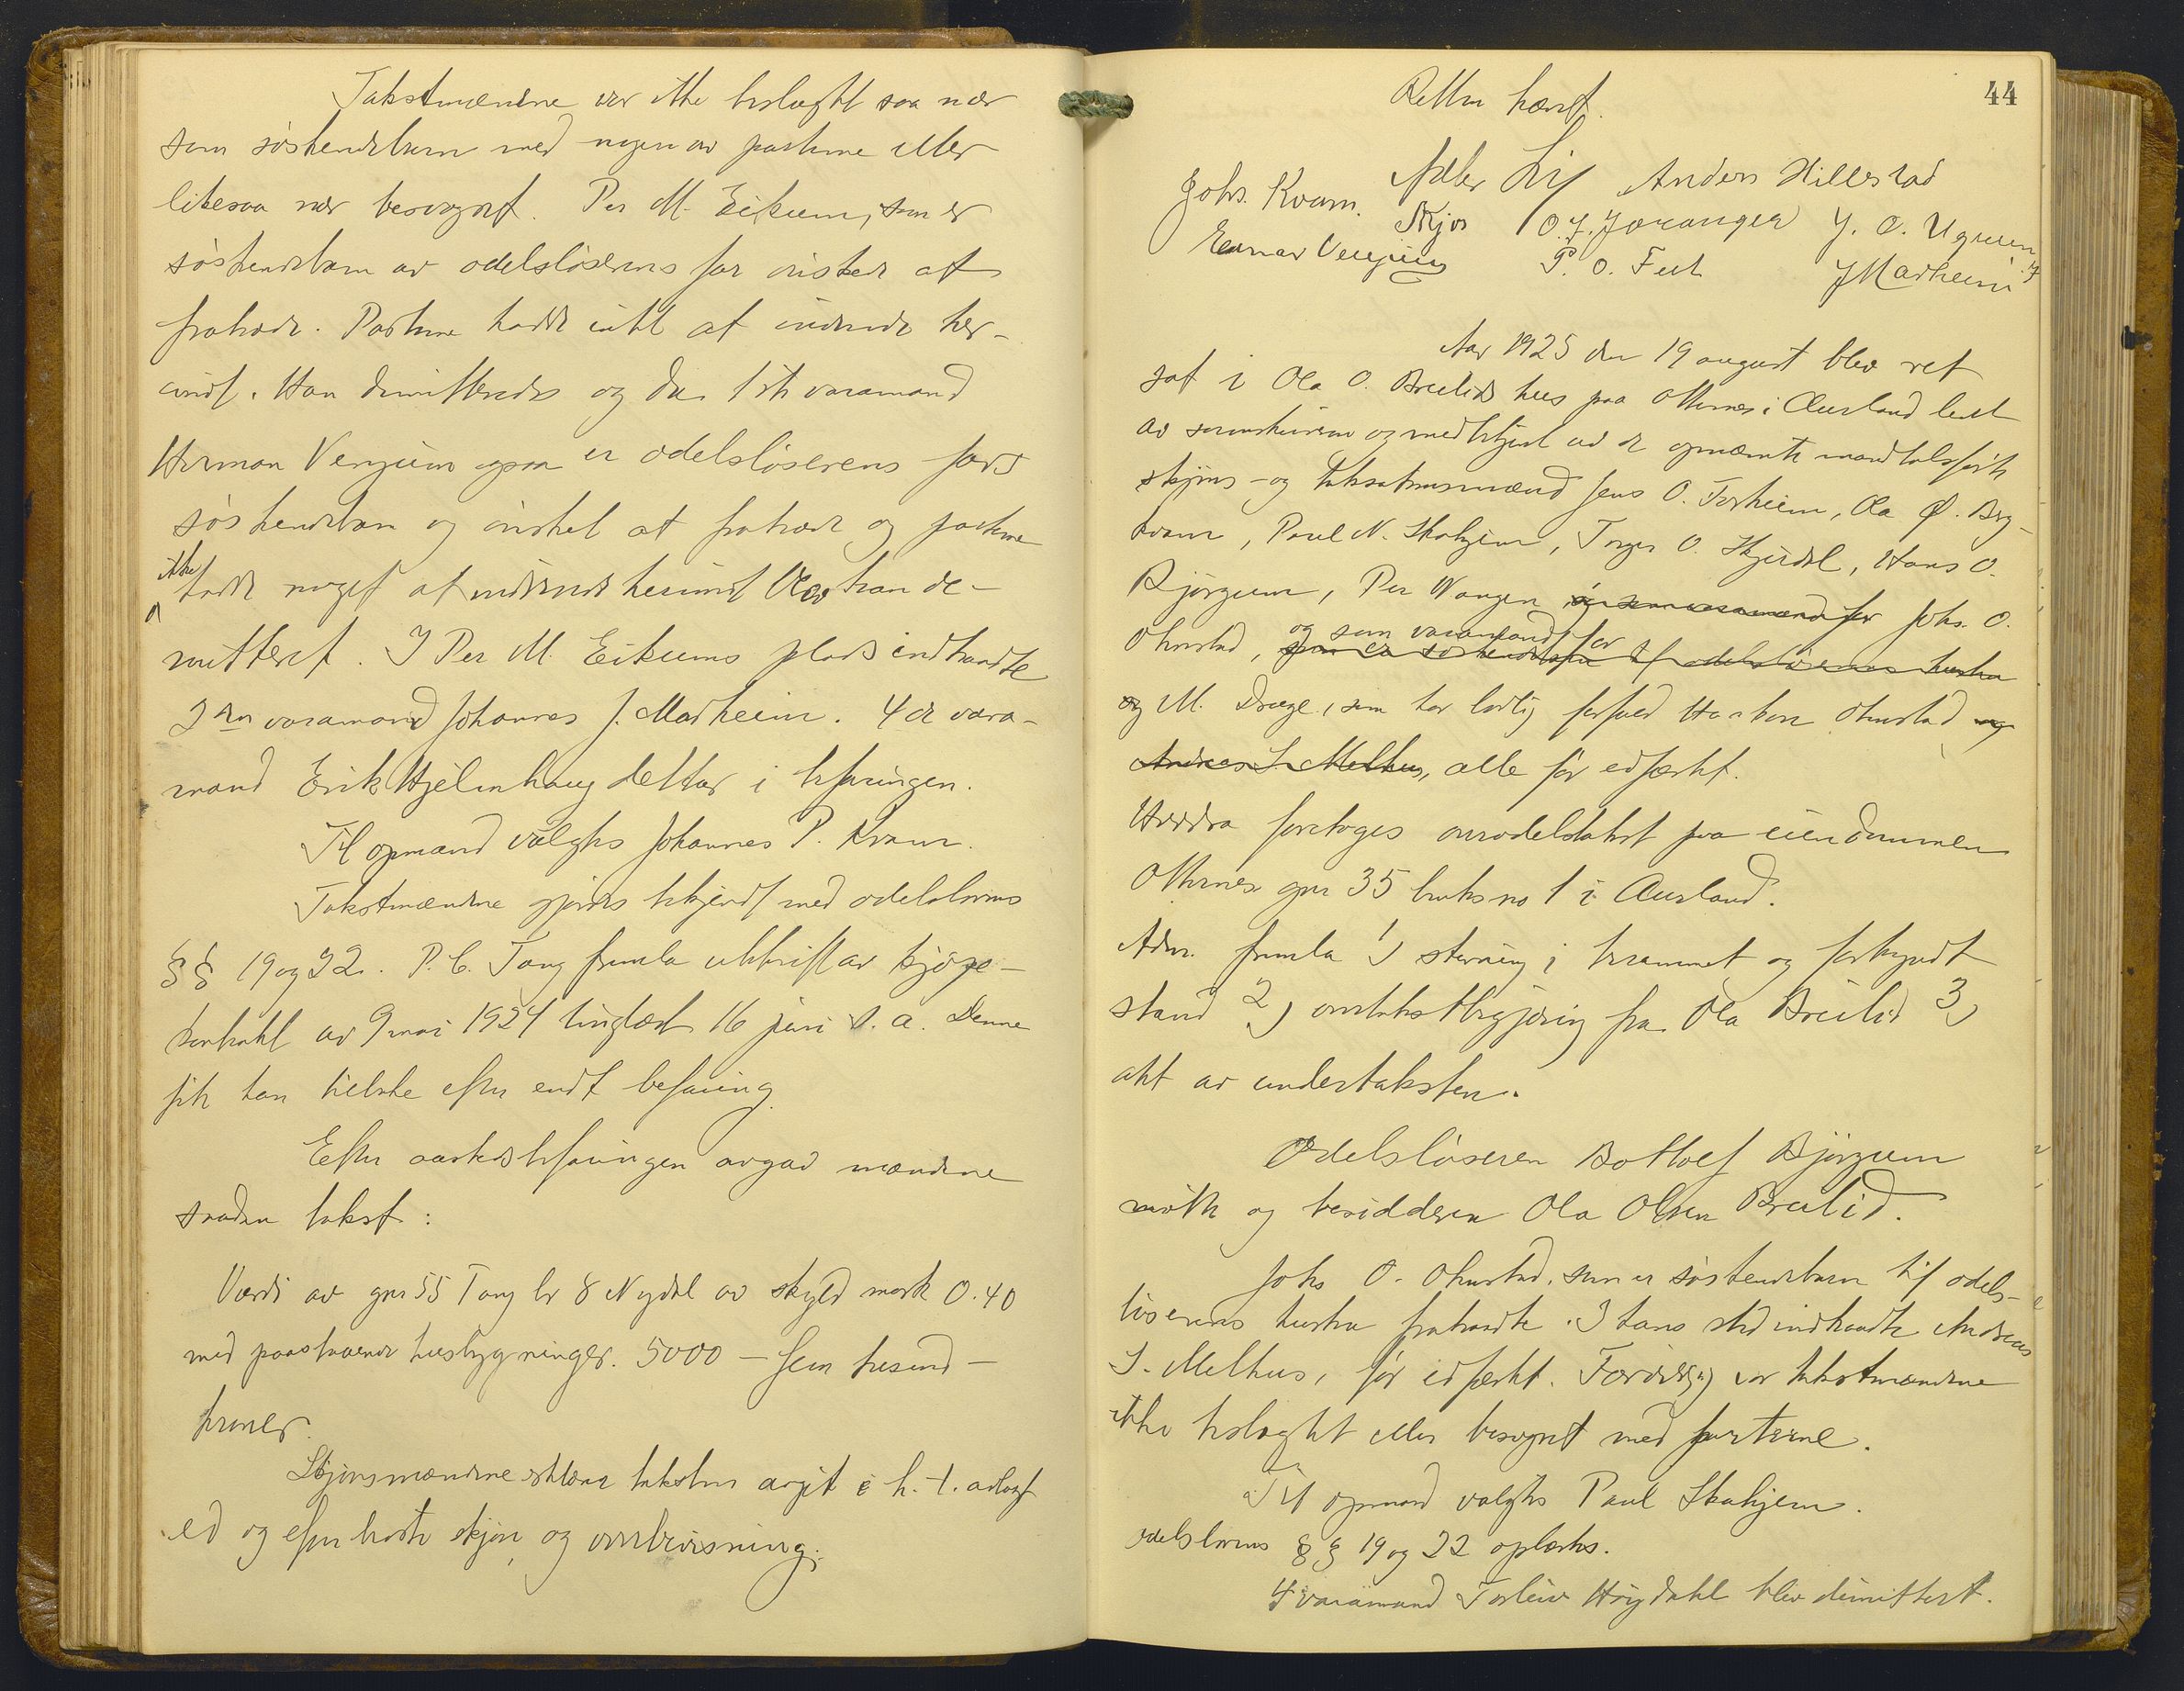 Takstmændene var ikke beslegtet saa nær
som söskendebarn med nogen av parterne eller
likesaa nær besvogret. Per M. Eikum, som er
söskendebarn av odelslöserens far önsket at
fratræde. Parterne hadde intet at indvende her-
imot. Han dimitteredes og da 1ste varamand
Herman Venjum ogsaa er odelslöserens fars
söskendebarn og önsket at fratræde og parterne
ikke
hadde noget at indvende herimot blev han de-
mittert. I Per M. Eikums plads indtraadte
2den varamand Johannes J. Marheim. 4de vara-
mand Erik Hjelmhaug deltar i befaringen.
Til opmand valgtes Johannes P. Kvam.
Takstmændene gjordes bekjendt med odelslovens
§§ 19 og 22. P. C. Tang fremla utskrift av kjöpe-
kontrakt av 9 mai 1924 tinglæst 16 juni s. a. Denne
fik han tilbake efter endt befaring
Efter aastedsbefaringen avgav mændene
saadan takst:
Værdi av gnr 55 Tang br 8 Nydal av skyld mark 0.40
med paastaaende husbygninger. 5000 – fem tusend –
kroner.
Skjönsmændene erklærer taksten avgit i h. t. avlagt
ed og efter bedste skjön og overbevisning.
44
Retten hævet.
Johs. Kvam. Anders Hillestad
O. J. Joranger J. O. Ugreen
P. O. Feet J Marheim
Aar 1925 den 19 august blev ret
sat i Ola O. Breilids hus paa Otternes i Aurland ledet
av sorenskriveren og med betjent av de opnævnte mandtalsförte
skjöns- og taksationsmænd Jens O. Torheim, Ola Ø. Berg-
kvam, Paul N. Skahjem, Torger O. Skjerdal, Hans O.
Bjørgum, Per Vangen og som varamænd for Johs. O.
og som varamand for
Ohnstad, som er söskendebarn til odelslöserens hustru
og M. Drage, som har lovlig forfald Haakon Ohnstad og
Andreas S. Melhus, alle för edfæstet.
Herredra foretoges overodelstakst paa eiendommen
Otternes gnr 35 bruksno 1 i Aurland.
Adm. fremla 1) stevning i berammet og forkyndt
stand 2) overtakstbegjæring fra Ola Breilid 3)
akt av undertaksten.
Odelslöseren Botholf Bjørgum
mötte og besidderen Ola Olsen Breilid.
Johs O. Ohnstad, som er söskendebarn til odels-
löserens hustru fratraadte. I hans sted indtraadte Andreas
S. Melhus, för edfæstet. Forövrig var takstmændene
ikke beslegtet eller besvogret med parterne.
Til opmand valgtes Paul Skahjem.
odelslovens §§ 19 og 22 oplæstes.
4 varamand Torleiv Høydahl blev dimittert.